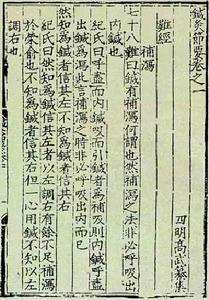 鍼灸節要卷之一
四明高武纂集
難經
補瀉
七十八難曰鍼有補瀉何謂也然補瀉之法非必呼吸出
內鍼也
紀氏曰呼盡而內鍼吸而引鍼者為補吸則內鍼呼盡
出鍼為瀉此言補瀉之法非必呼吸出內而已
然知為鍼者信其左不知為鍼者信其右
紀氏曰然知為鍼信其左者以左調右有餘不足補瀉
於榮俞也不知為鍼者信其右但一心用鍼不知以左
調右也